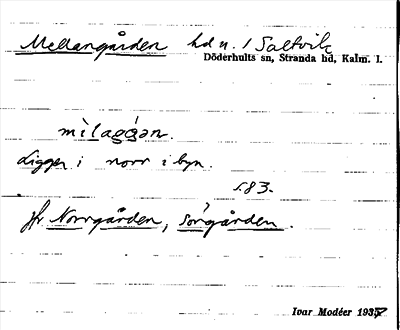 Mellangården hd n. 1 Saltvik
Döderhults sn, Stranda hd, Kalm. l.
mìlagǵan.
Ligger i norr i byn.
s. 83.
jfr Norrgården, Sörgården.
Ivar Modéer 1937